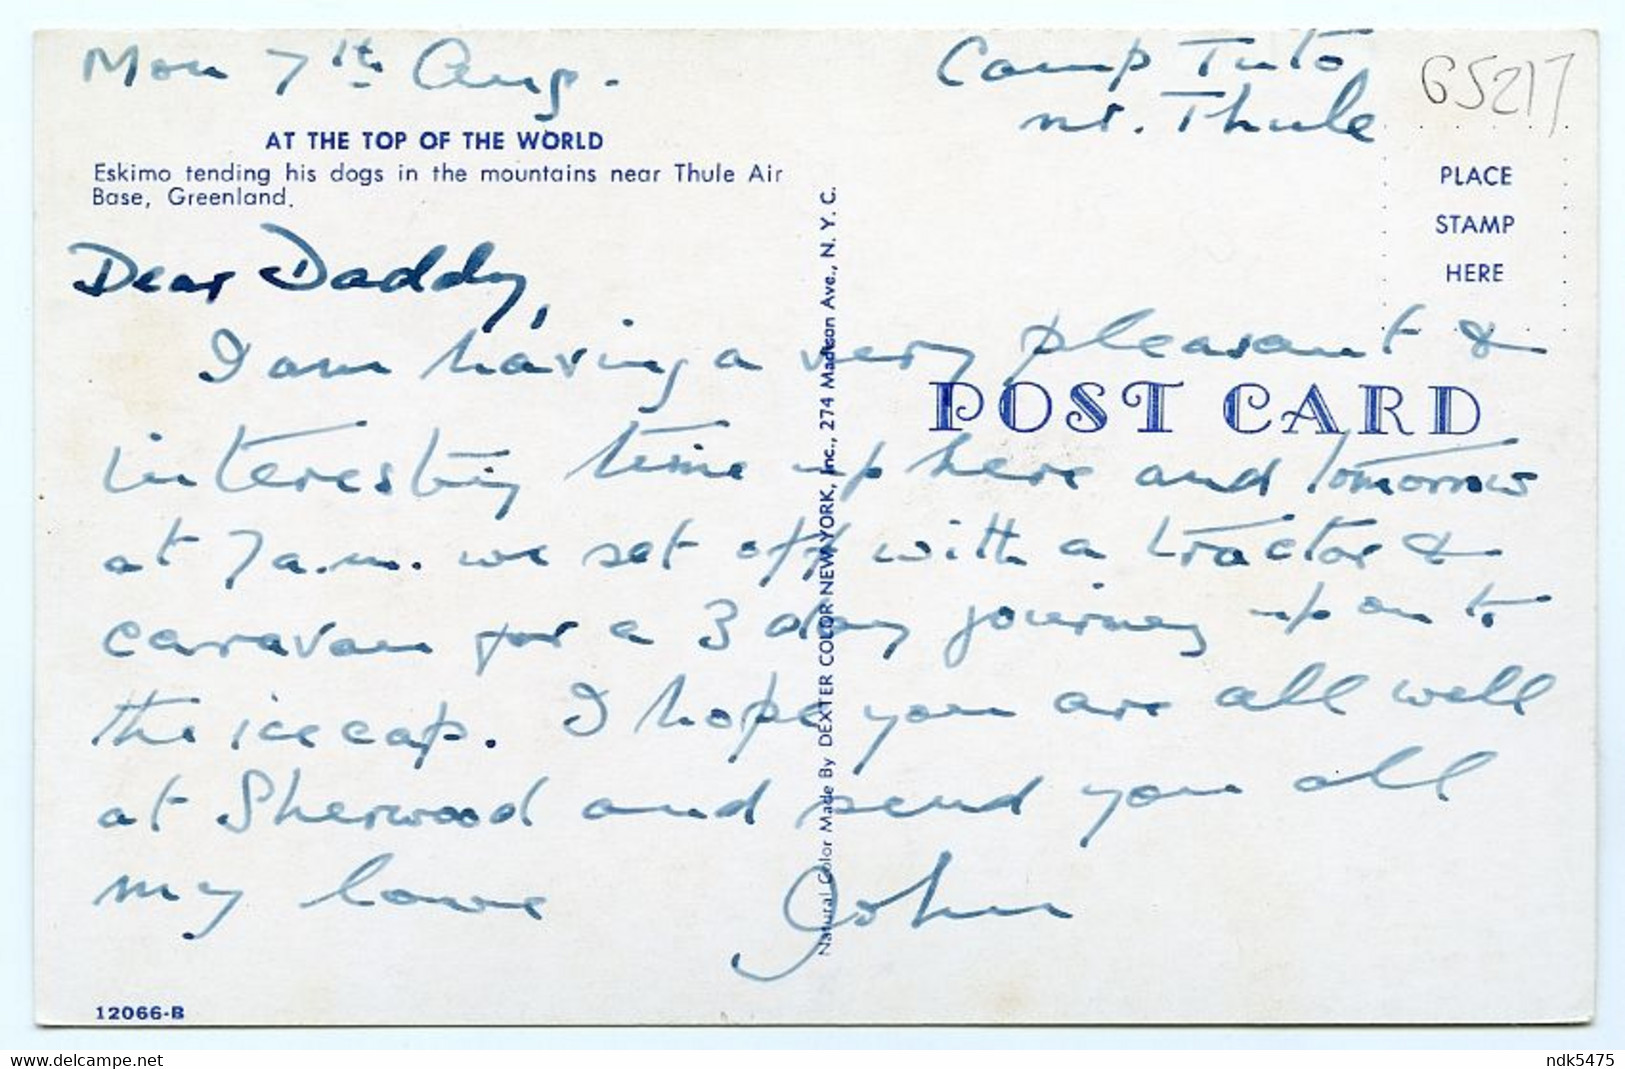 Mon 7th Aug.
Camp Tuto
nr. Thule
G5217
AT THE TOP OF THE WORLD
Eskimo tending his dogs in the mountains near Thule Air
Base, Greenland.
PLACE
STAMP
HERE
Dear Daddy,
I am having a very pleasant &
POST CARD
interesting time up here and tomorrow
at 7 a.m. we set off with a tractor &
caravan for a 3 day journey up on to
the icecap. I hope you are all well
at Sherwood and send you all
my love John
Natural Color Made By DEXTER COLOR NEW YORK, Inc., 274 Madison Ave., N. Y. C.
12066-B
www.delcampe.net
ndk5475